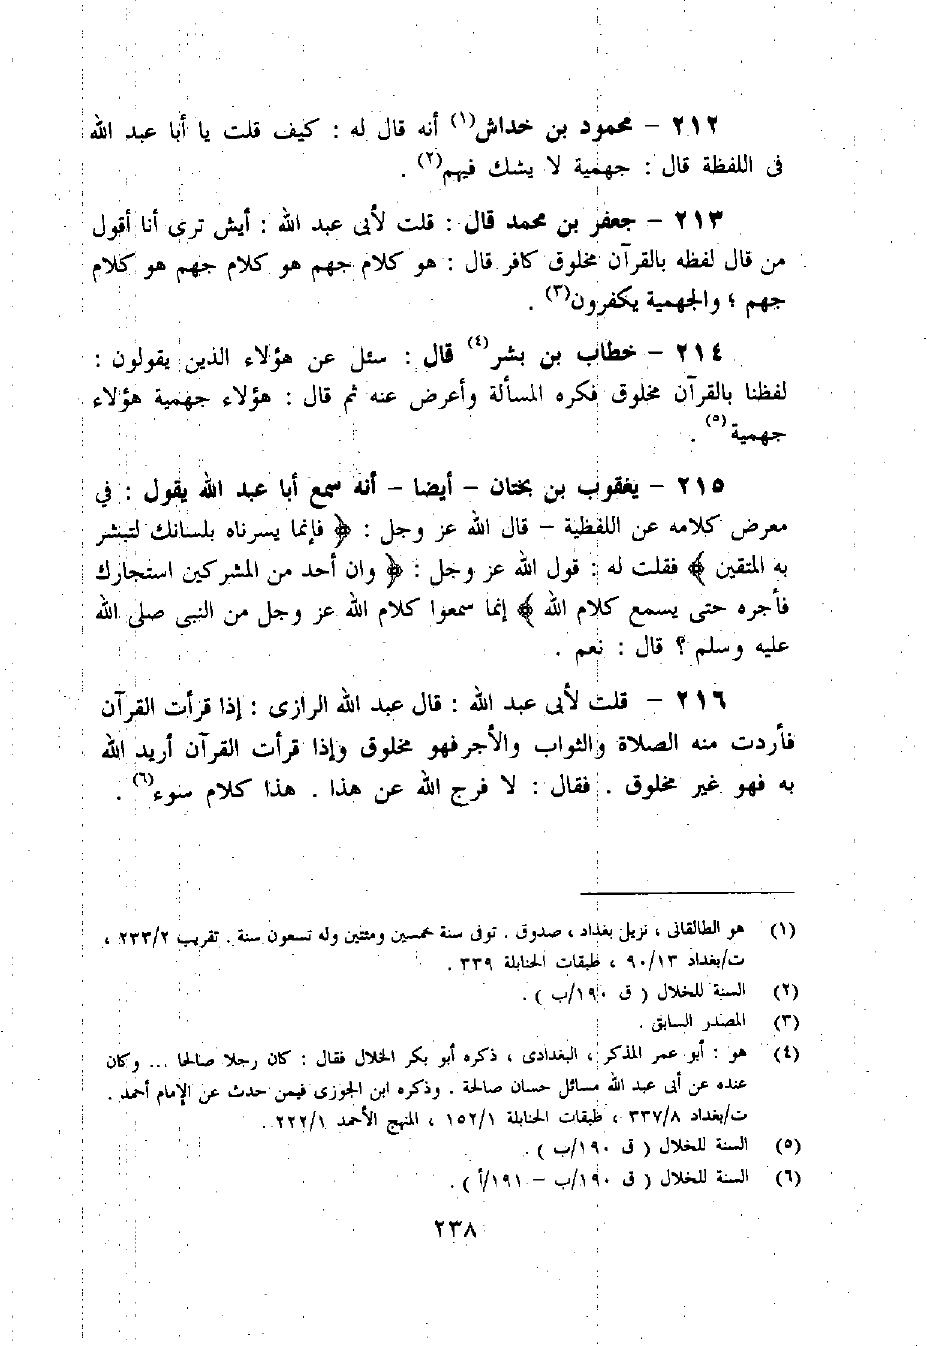 ٢١٢ – محمود بن خداش(١) أنه قال له : كيف قلت يا أبا عبد الله
فى اللفظة قال : جهمية لا يشك فيهم(٢) .
٢١٣ – جعفر بن محمد قال : قلت لأبى عبد الله : أيش ترى أنا أقول
من قال لفظه بالقرآن مخلوق كافر قال : هو كلام جهم هو كلام جهم هو كلام
جهم ؛ والجهمية يكفرون(٣) .
٢١٤ – خطاب بن بشر(٤) قال : سئل عن هؤلاء الذين يقولون :
لفظنا بالقرآن مخلوق فكره المسألة وأعرض عنه ثم قال : هؤلاء جهمية هؤلاء
جهمية(٥) .
٢١٥ – يعقوب بن بختان – أيضا – أنه سمع أبا عبد الله يقول : في
معرض كلامه عن اللفظية – قال الله عز وجل : ﴿ فإنما يسرناه بلسانك لتبشر
به المتقين ﴾ فقلت له : قول الله عز وجل : ﴿ وان أحد من المشركين استجارك
فأجره حتى يسمع كلام الله ﴾ إنما سمعوا كلام الله عز وجل من النبى صلى الله
عليه وسلم ؟ قال : نعم .
٢١٦ – قلت لأبى عبد الله : قال عبد الله الرازى : إذا قرأت القرآن
فأردت منه الصلاة والثواب والأجر فهو مخلوق وإذا قرأت القرآن أريد الله
به فهو غير مخلوق . فقال : لا فرج الله عن هذا . هذا كلام سوء(٦) .
(١) هو الطالقانى ، نزيل بغداد ، صدوق . توفى سنة خمسين ومئتين وله تسعون سنة . تقريب ٢٣٣/٢ ،
ت/بغداد ٩٠/١٣ ، طبقات الحنابلة ٣٣٩ .
(٢) السنة للخلال ( ق ١٩٠/ب ) .
(٣) المصدر السابق .
(٤) هو : أبو عمر المذكر ، البغدادى ، ذكره أبو بكر الخلال فقال : كان رجلا صالحا ... وكان
عنده عن أبى عبد الله مسائل حسان صالحة . وذكره ابن الجوزى فيمن حدث عن الإمام أحمد .
ت/بغداد ٣٣٧/٨ ، طبقات الحنابلة ١٥٢/١ ، المنهج الأحمد ٢٢٢/١ .
(٥) السنة للخلال ( ق ١٩٠/ب ) .
(٦) السنة للخلال ( ق ١٩٠/ب – ١٩١/أ ) .
٢٣٨